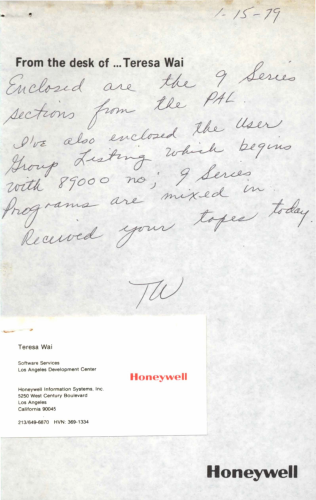 1-15-79
From the desk of ... Teresa Wai
Enclosed are the 9 Series
sections from the PAL.
I've also enclosed the User
Group Listing which begins
with 89000 no; 9 Series
Programs are mixed in
Received your tapes today.
TW
Teresa Wai
Software Services
Los Angeles Development Center
Honeywell
Honeywell Information Systems, Inc.
5250 West Century Boulevard
Los Angeles
California 90045
213/649-6870 HVN: 369-1334
Honeywell